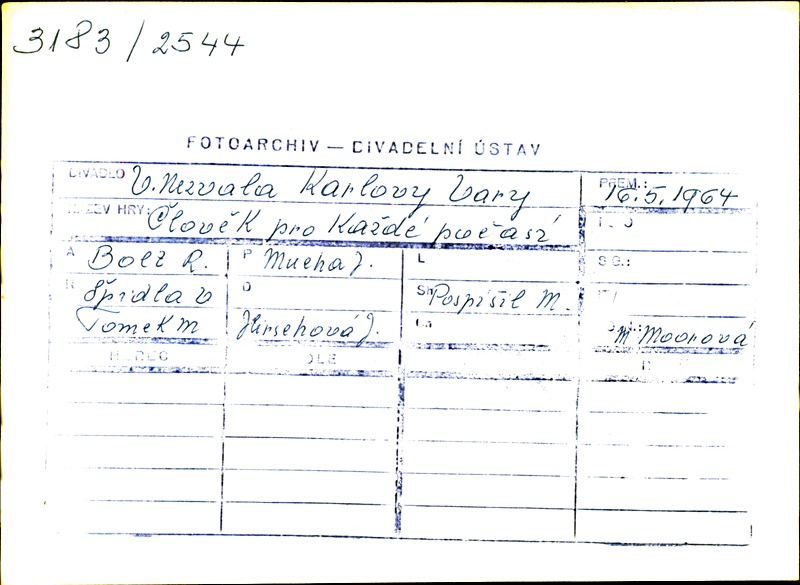 3183/2544
FOTOARCHIV — DIVADELNÍ ÚSTAV
DIVADLO V. Nezvala Karlovy Vary PREM.: 16.5.1964
NÁZEV HRY: Člověk pro každé počasí
A Bolt R. P Mucha J. L SC.:
R Špidla V O Sh Pospíšil M.
Tomek M Hirschová J. M Moorová